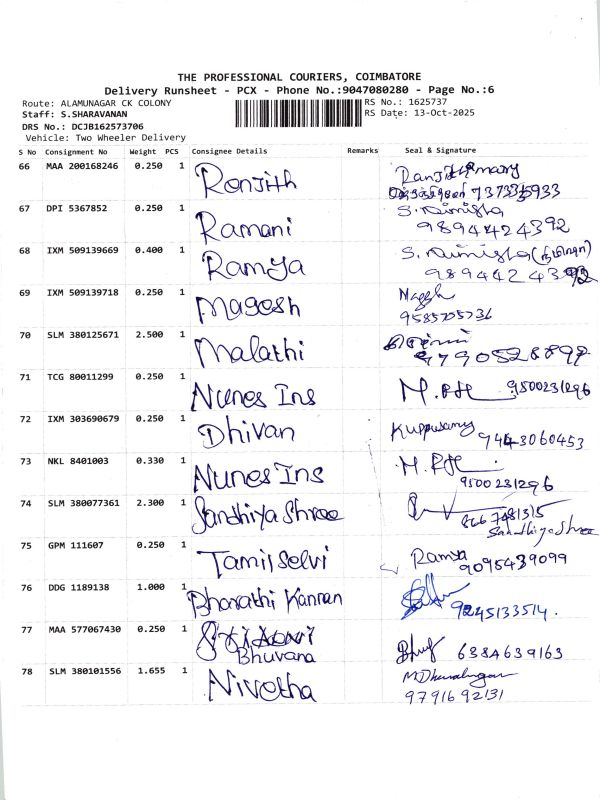 THE PROFESSIONAL COURIERS, COIMBATORE
Delivery Runsheet - PCX - Phone No.:9047080280 - Page No.:6
Route: ALAMUNAGAR CK COLONY
RS No.: 1625737
Staff: S.SHARAVANAN
RS Date: 13-Oct-2025
DRS No.: DCJB162573706
Vehicle: Two Wheeler Delivery
S No Consignment No Weight PCS Consignee Details Remarks Seal & Signature
66 MAA 200168246 0.250 1 Ronjith
67 DPI 5367852 0.250 1 Ramani
9894424392
68 IXM 509139669 0.400 1 Ramya
69 IXM 509139718 0.250 1 Magesh
9585725736
70 SLM 380125671 2.500 1 Malathi
9790528897
71 TCG 80011299 0.250 1 Nunes Ins 9500231296
72 IXM 303690679 0.250 1 Dhivan Kuppusamy 9443060453
73 NKL 8401003 0.330 1 Nunes Ins
9500231296
74 SLM 380077361 2.300 1 Sandhiya Shree
Sandhiya Shree
75 GPM 111607 0.250 1 Tamil Selvi Ramya
9095439099
76 DDG 1189138 1.000 1 Bharathi Kannan 9245133514.
77 MAA 577067430 0.250 1
Bhuvana 6384639163
78 SLM 380101556 1.655 1 Nivetha
9791692131